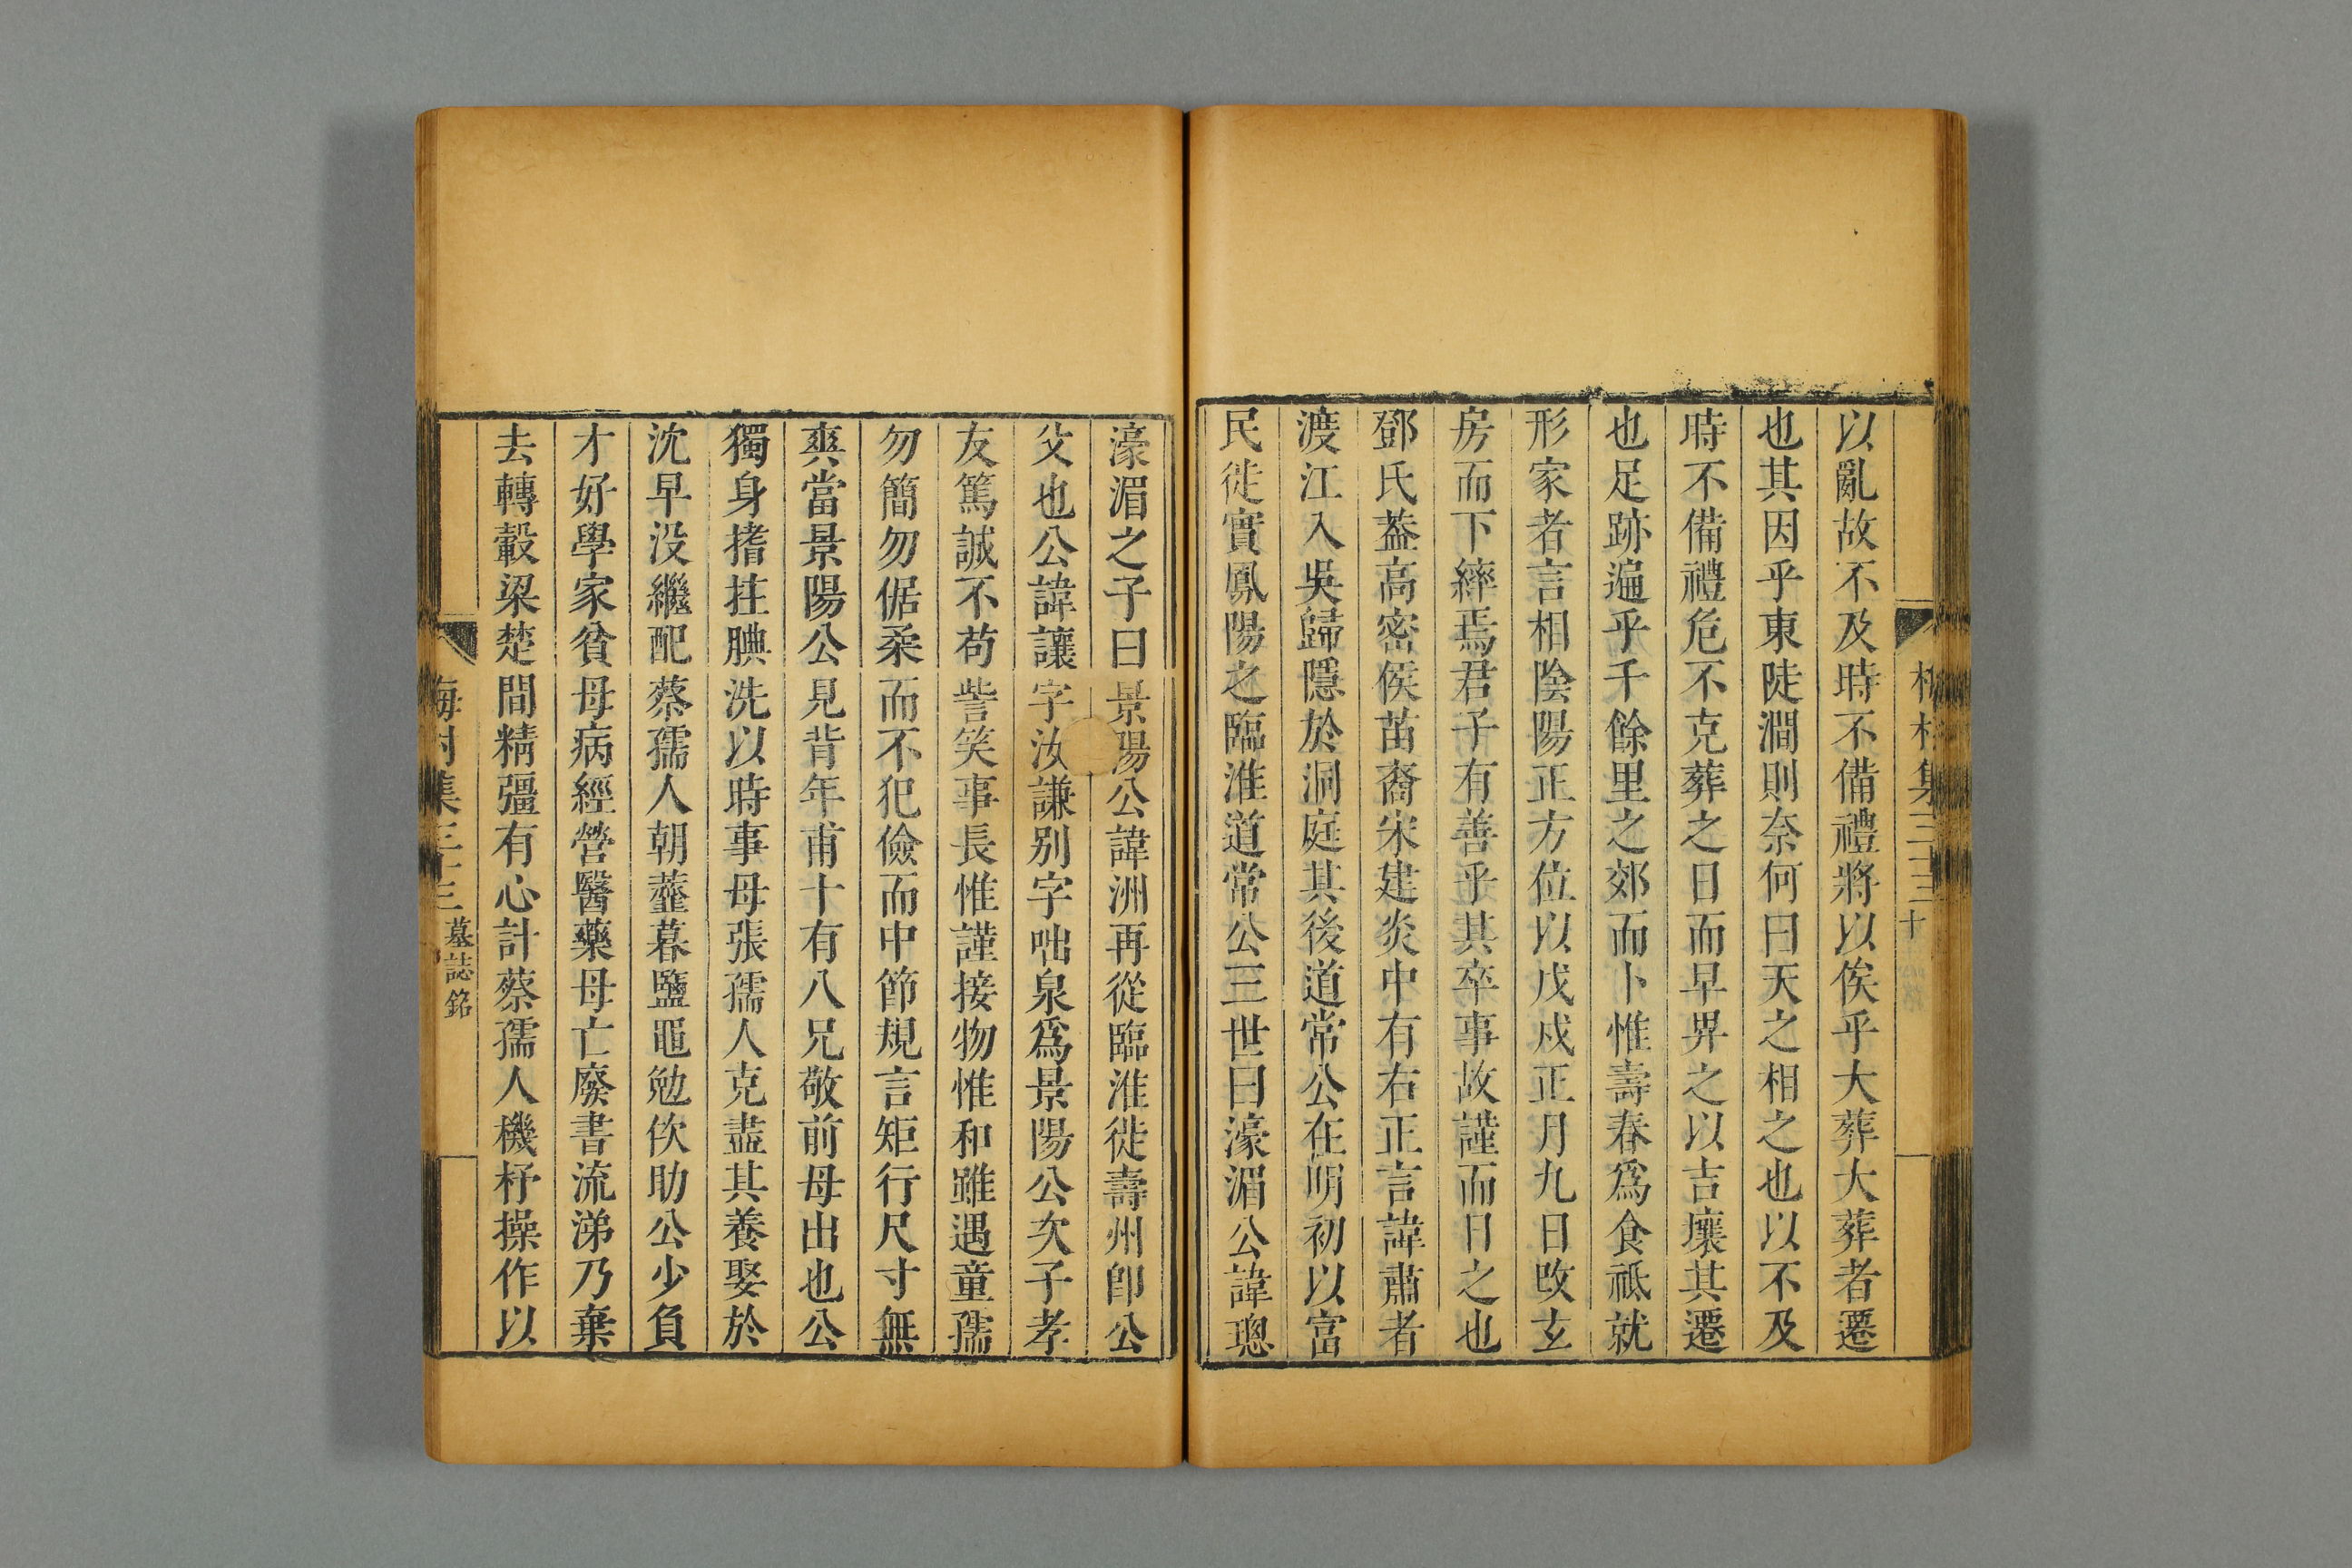 以亂故不及時不備禮將以俟乎大葬大葬者遷
也其因乎東陡澗則奈何曰天之相之也以不及
時不備禮危不克葬之日而早畀之以吉壤其遷
也足跡遍乎千餘里之郊而卜惟壽春爲食祗就
形家者言相陰陽正方位以戊戍正月九日改玄
房而下繂焉君子有善乎其卒事故謹而日之也
鄧氏葢高密侯苗裔宋建炎中有右正言諱肅者
渡江入吳歸隱於洞庭其後道常公在明初以富
民徙實鳳陽之臨淮道常公三世曰濠湄公諱璁
濠湄之子曰景陽公諱洲再從臨淮徙壽州卽公
父也公諱讓字汝謙别字咄泉爲景陽公次子孝
友篤誠不苟訾笑事長惟謹接物惟和雖遇童孺
勿簡勿倨柔而不犯儉而中節規言矩行尺寸無
爽當景陽公見背年甫十有八兄敬前母出也公
獨身搘拄腆洗以時事母張孺人克盡其養娶於
沈早没繼配蔡孺人朝虀暮鹽黽勉佽助公少負
才好學家貧母病經營醫藥母亡廢書流涕乃棄
去轉轂梁楚間精彊有心計蔡孺人機杼操作以
海村集三十三 墓誌銘